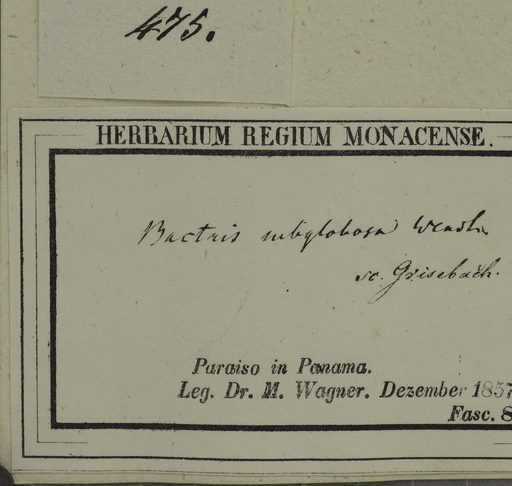 475.
HERBARIUM REGIUM MONACENSE.
Bactris subglobosa Wendl.
sc. Grisebach.
Paraiso in Panama.
Leg. Dr. M. Wagner. Dezember 1857
Fasc. 8